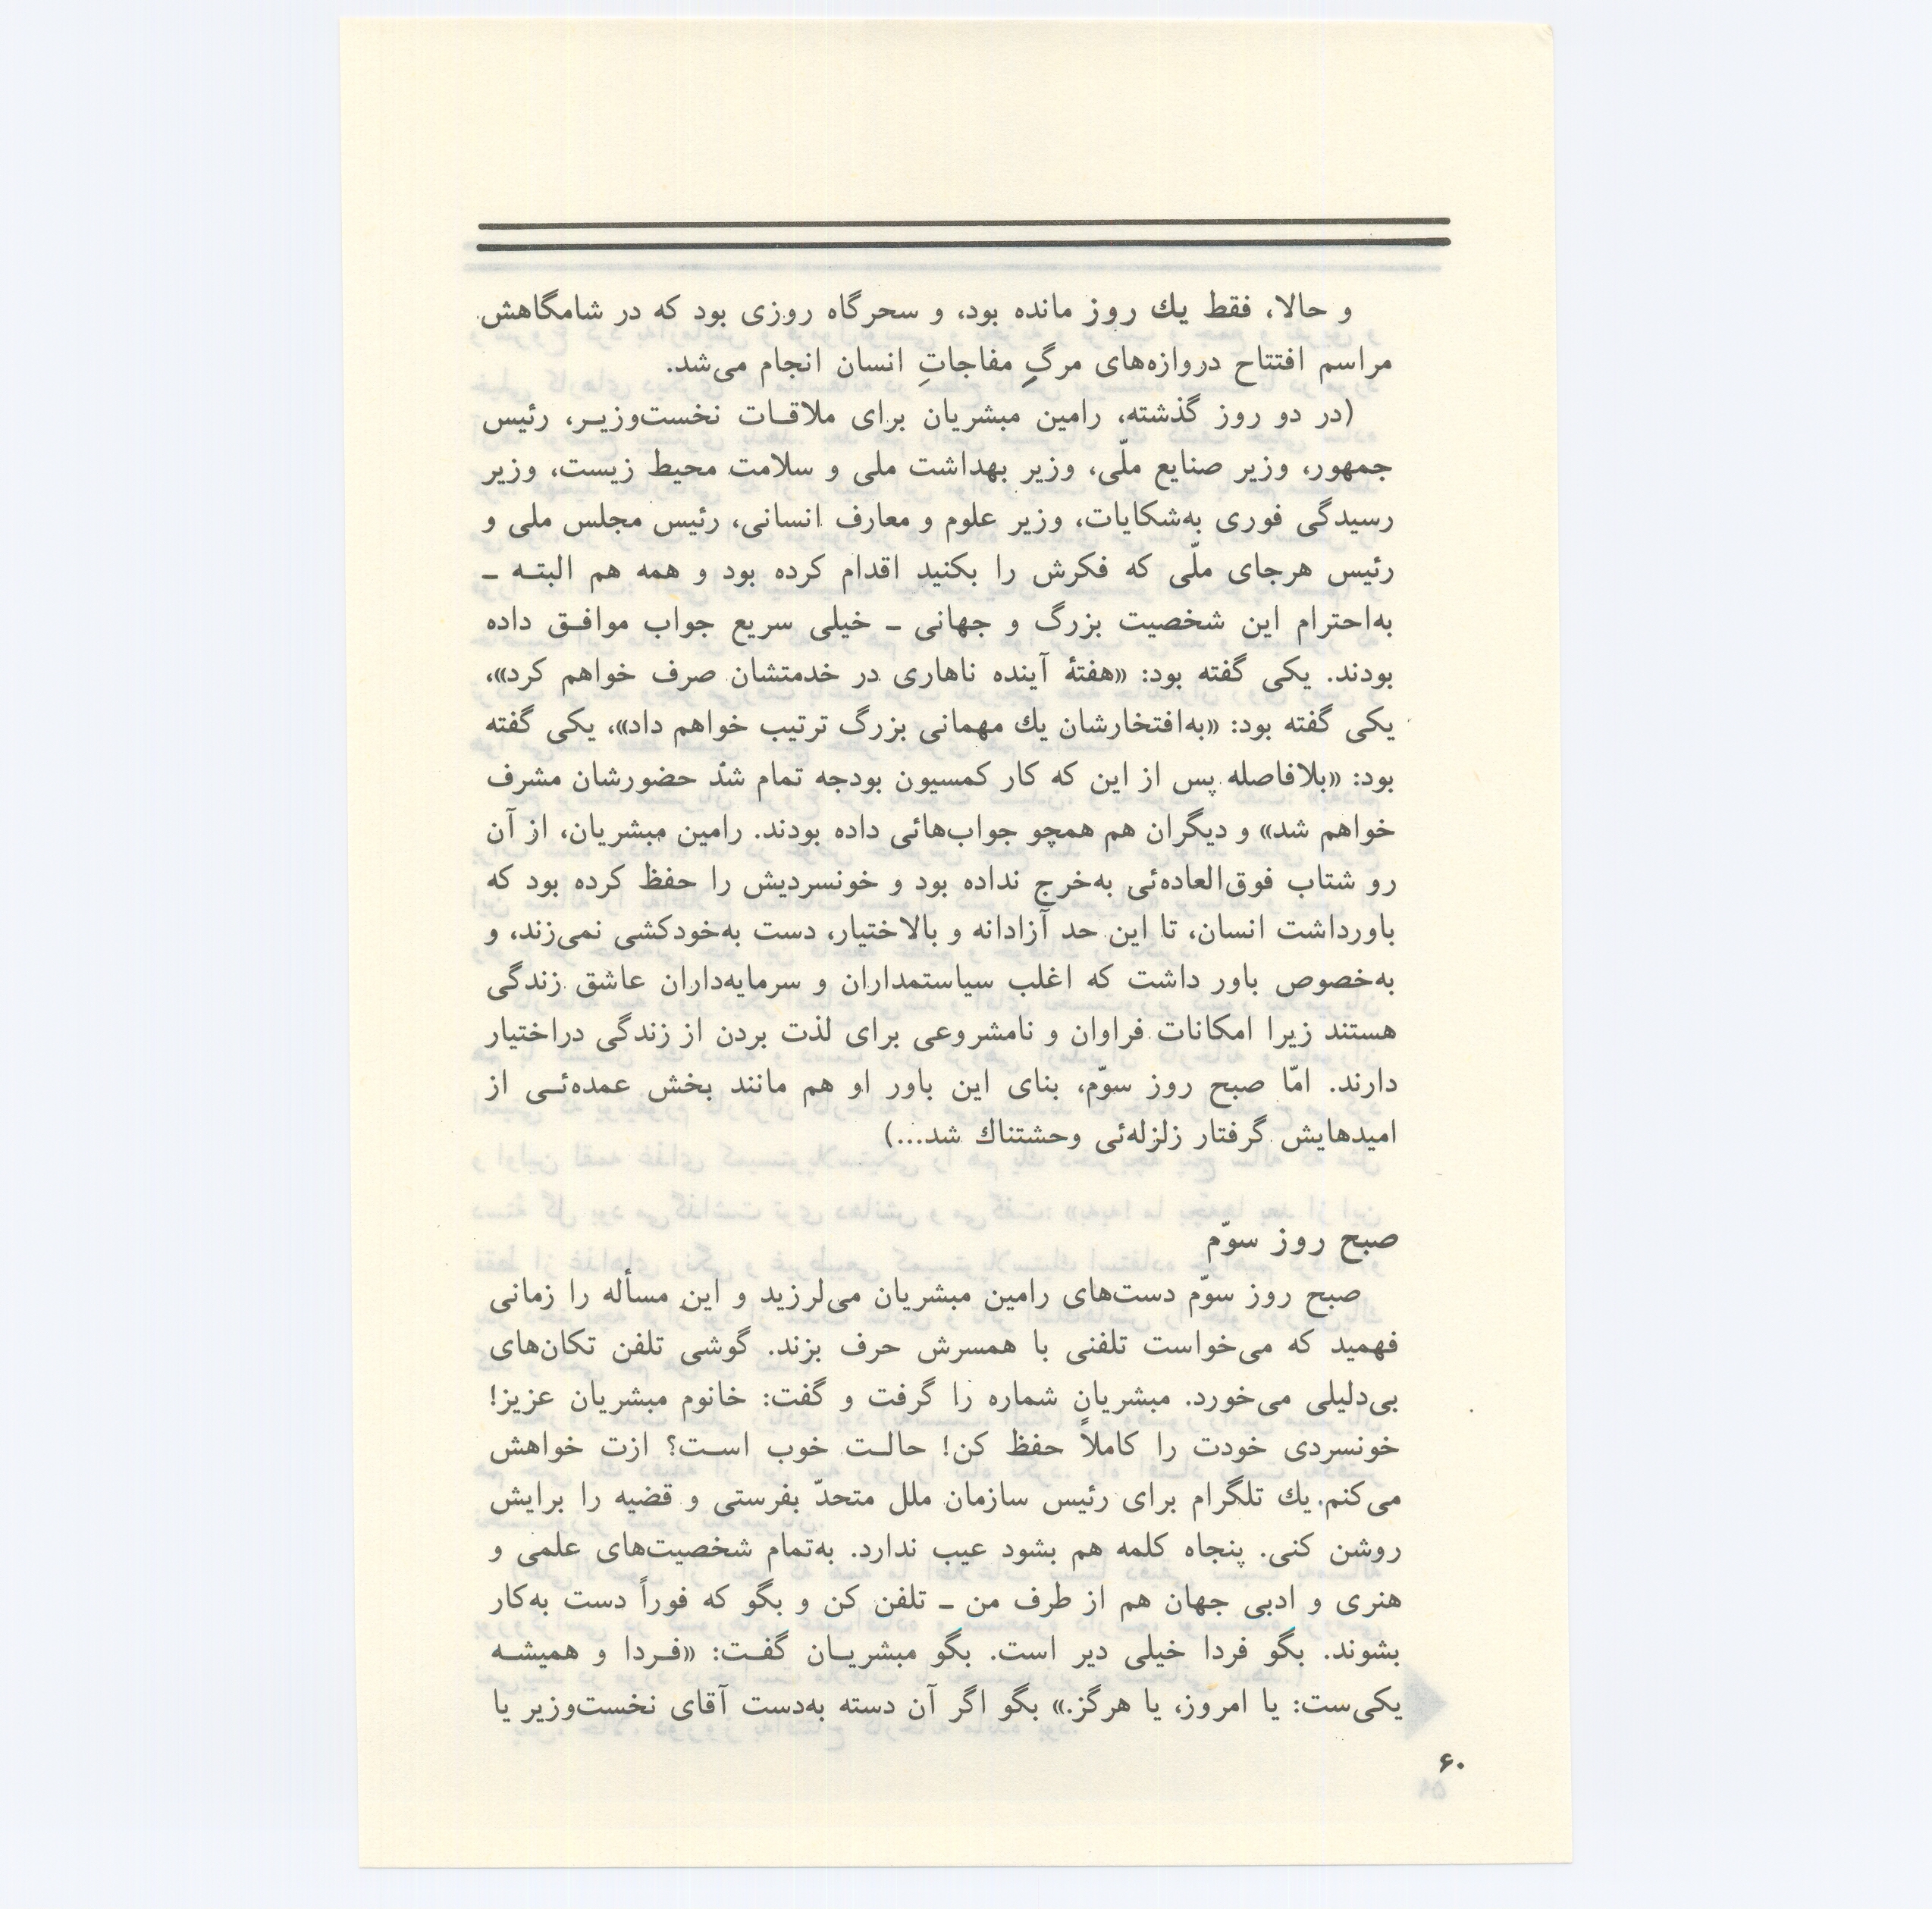 و حالا، فقط یك روز مانده بود، و سحرگاه روزی بود که در شامگاهش
مراسم افتتاح دروازه‌های مرگِ مفاجاتِ انسان انجام می‌شد.
(در دو روز گذشته، رامین مبشریان برای ملاقـات نخست‌وزیـر، رئیس
جمهور، وزیر صنایع ملّی، وزیر بهداشت ملی و سلامت محیط زیست، وزیر
رسیدگی فوری به‌شکایات، وزیر علوم و معارف انسانی، رئیس مجلس ملی و
رئیس هرجای ملّی که فکرش را بکنید اقدام کرده بود و همه هم البتـه ـ
به‌احترام این شخصیت بزرگ و جهانی ـ خیلی سریع جواب موافـق داده
بودند. یکی گفته بود: «هفتهٔ آینده ناهاری در خدمتشان صرف خواهم کرد»،
یکی گفته بود: «به‌افتخارشان یك مهمانی بزرگ ترتیب خواهم داد»، یکی گفته
بود: «بلافاصله پس از این که کار کمسیون بودجه تمام شد حضورشان مشرف
خواهم شد» و دیگران هم همچو جواب‌هائی داده بودند. رامین مبشریان، از آن
رو شتاب فوق‌العاده‌ئی به‌خرج نداده بود و خونسردیش را حفظ کرده بود که
باورداشت انسان، تا این حد آزادانه و بالاختیار، دست به‌خودکشی نمی‌زند، و
به‌خصوص باور داشت که اغلب سیاستمداران و سرمایه‌داران عاشق زندگی
هستند زیرا امکانات فراوان و نامشروعی برای لذت بردن از زندگی دراختیار
دارند. امّا صبح روز سوّم، بنای این باور او هم مانند بخش عمده‌ئـی از
امیدهایش گرفتار زلزله‌ئی وحشتناك شد...)
صبح روز سوّم
صبح روز سوّم دست‌های رامین مبشریان می‌لرزید و این مسأله را زمانی
فهمید که می‌خواست تلفنی با همسرش حرف بزند. گوشی تلفن تکان‌های
بی‌دلیلی می‌خورد. مبشریان شماره را گرفت و گفت: خانوم مبشریان عزیز!
خونسردی خودت را کاملاً حفظ کن! حالـت خوب اسـت؟ ازت خواهش
می‌کنم یك تلگرام برای رئیس سازمان ملل متحدّ بفرستی و قضیه را برایش
روشن کنی. پنجاه کلمه هم بشود عیب ندارد. به‌تمام شخصیت‌های علمی و
هنری و ادبی جهان هم از طرف من ـ تلفن کن و بگو که فوراً دست به‌کار
بشوند. بگو فردا خیلی دیر است. بگو مبشریـان گفـت: «فـردا و همیشـه
یکی‌ست: یا امروز، یا هرگز.» بگو اگر آن دسته به‌دست آقای نخست‌وزیر یا
۶۰